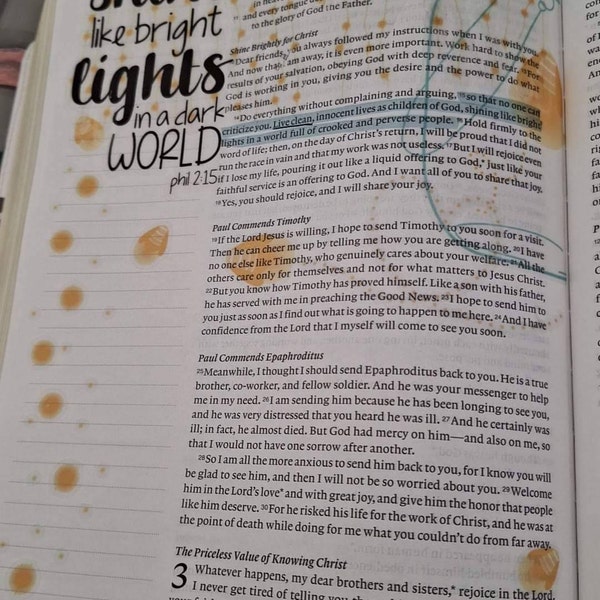 like bright
lights
in a dark
WORLD
phil 2:15
and every tongue
to the glory of God the Father.
Shine Brightly for Christ
12Dear friends, you always followed my instructions when I was with you.
And now that I am away, it is even more important. Work hard to show the
results of your salvation, obeying God with deep reverence and fear. 13For
God is working in you, giving you the desire and the power to do what
pleases him.
14Do everything without complaining and arguing, 15so that no one can
criticize you. Live clean, innocent lives as children of God, shining like bright
lights in a world full of crooked and perverse people. 16Hold firmly to the
word of life; then, on the day of Christ's return, I will be proud that I did not
run the race in vain and that my work was not useless. 17But I will rejoice even
if I lose my life, pouring it out like a liquid offering to God,* just like your
faithful service is an offering to God. And I want all of you to share that joy.
18Yes, you should rejoice, and I will share your joy.
Paul Commends Timothy
19If the Lord Jesus is willing, I hope to send Timothy to you soon for a visit.
Then he can cheer me up by telling me how you are getting along. 20I have
no one else like Timothy, who genuinely cares about your welfare. 21All the
others care only for themselves and not for what matters to Jesus Christ.
22But you know how Timothy has proved himself. Like a son with his father,
he has served with me in preaching the Good News. 23I hope to send him to
you just as soon as I find out what is going to happen to me here. 24And I have
confidence from the Lord that I myself will come to see you soon.
Paul Commends Epaphroditus
25Meanwhile, I thought I should send Epaphroditus back to you. He is a true
brother, co-worker, and fellow soldier. And he was your messenger to help
me in my need. 26I am sending him because he has been longing to see you,
and he was very distressed that you heard he was ill. 27And he certainly was
ill; in fact, he almost died. But God had mercy on him—and also on me, so
that I would not have one sorrow after another.
28So I am all the more anxious to send him back to you, for I know you will
be glad to see him, and then I will not be so worried about you. 29Welcome
him in the Lord's love* and with great joy, and give him the honor that people
like him deserve. 30For he risked his life for the work of Christ, and he was at
the point of death while doing for me what you couldn't do from far away.
The Priceless Value of Knowing Christ
3 Whatever happens, my dear brothers and sisters,* rejoice in the Lord.
I never get tired of telling you